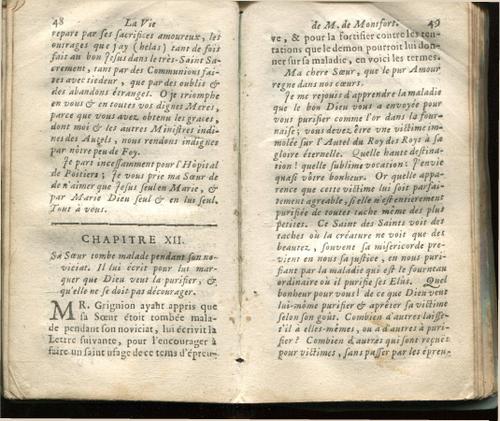 48 La Vie
repare par ses sacrifices amoureux, les
outrages que j'ay (helas) tant de fois
fait au bon Jesus dans le très-Saint Sa-
crement, tant par des Communions fai-
ses avec tiedeur, que par des oublis &
des abandons étranges. O je triomphe
en vous & en toutes vos dignes Meres,
parce que vous avez obtenu les graces,
dont moi & les autres Ministres indi-
nes des Autels, nous rendons indignes
par nôtre peu de Foy.
Je pars incessamment pour l'Hôpital
de Poitiers; Je vous prie ma Sœur de
de n'aimer que Jesus seul en Marie, &
par Marie Dieu seul & en lui seul.
Tout à vous.
CHAPITRE XII.
Sa Sœur tombe malade pendant son no-
viciat. Il lui écrit pour lui mar-
quer que Dieu veut la purifier, &
qu'elle ne se doit pas décourager.
MR. Grignion ayant appris que
sa Sœur étoit tombée mala-
de pendant son noviciat, lui écrivit la
Lettre suivante, pour l'encourager à
faire un saint usage de ce tems d'épreu-
de M. de Montfort. 49
ve, & pour la fortifier contre les ten-
tations que le demon pourroit lui don-
ner sur sa maladie, en voici les termes.
Ma chere Sœur, que le pur Amour
regne dans nos cœurs.
Je me rejouis d'apprendre la maladie
que le bon Dieu vous a envoyée pour
vous purifier comme l'or dans la four-
naise; vous devez être une victime im-
molée sur l'Autel du Roy des Roys à sa
gloire éternelle. Quelle haute destina-
tion! quelle sublime vocation! J'envie
quasi vôtre bonheur. Or quelle appa-
rence que cette victime lui soit parfai-
tement agreable, si elle n'est entierement
purifiée de toutes tache même des plus
petites. Ce Saint des Saints voit des
taches où la créature ne voit que des
beautez, souvent sa misericorde pre-
vient en nous sa justice, en nous puri-
fiant par la maladie qui est le fourneau
ordinaire où il purifie ses Elus. Quel
bonheur pour vous! de ce que Dieu vent
lui-même purifier & aprêter sa victime
selon son goût. Combien d'autres laisse-
t'il à elles-mêmes, ou a d'autres à puri-
fier? Combien d'autres qui sont reçues
pour victimes, sans passer par les épreu-